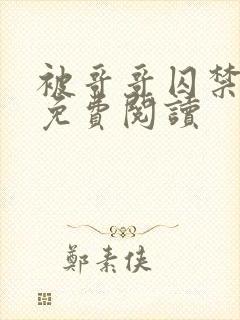 被哥哥囚禁
免費閱讀
鄭素俠